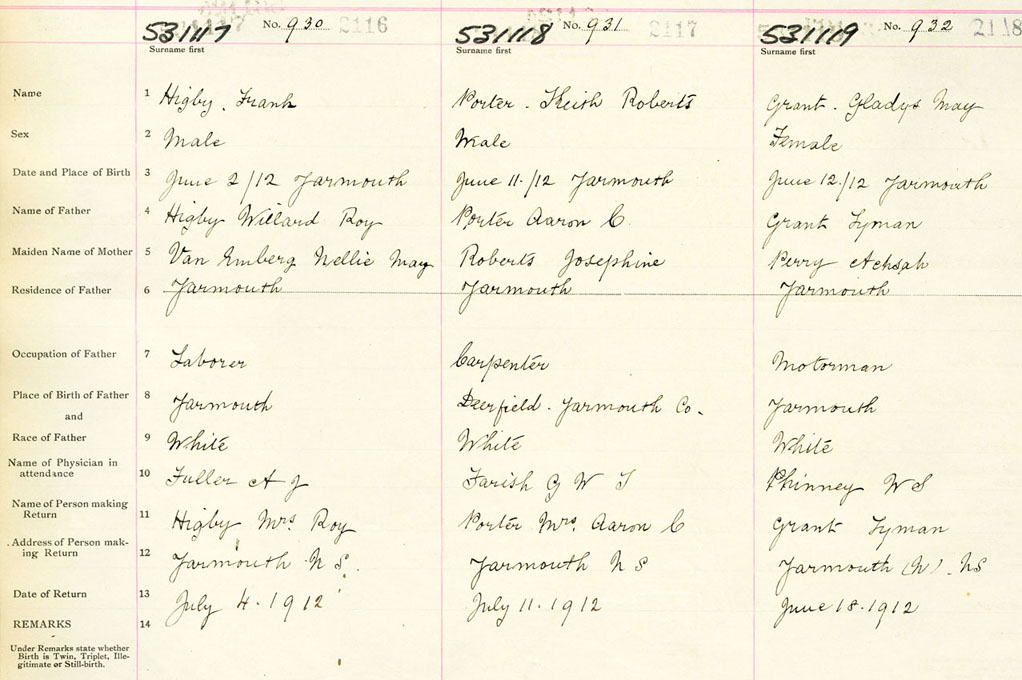 531117 No. 930 2116 531118 No. 931 2117 531119 No. 932 2118
Surname first Surname first Surname first
Name 1 Higby. Frank Porter. Keith Roberts Grant. Gladys May
Sex 2 Male Male Female
Date and Place of Birth 3 June 2/12 Yarmouth June 11/12 Yarmouth June 12/12 Yarmouth
Name of Father 4 Higby Willard Roy Porter Aaron C. Grant Lyman
Maiden Name of Mother 5 Van Emberg Nellie May Roberts Josephine Perry Achsah
Residence of Father 6 Yarmouth Yarmouth Yarmouth
Occupation of Father 7 Laborer Carpenter Motorman
Place of Birth of Father 8 Yarmouth Deerfield. Yarmouth Co. Yarmouth
and
Race of Father 9 White White White
Name of Physician in
attendance 10 Fuller A J Farish G W T Phinney W S
Name of Person making
Return 11 Higby Mrs Roy Porter Mrs. Aaron C Grant Lyman
Address of Person mak-
ing Return 12 Yarmouth N S. Yarmouth N S Yarmouth (N). NS
Date of Return 13 July 4. 1912 July 11. 1912 June 18. 1912
REMARKS 14
Under Remarks state whether
Birth is Twin, Triplet, Ille-
gitimate or Still-birth.